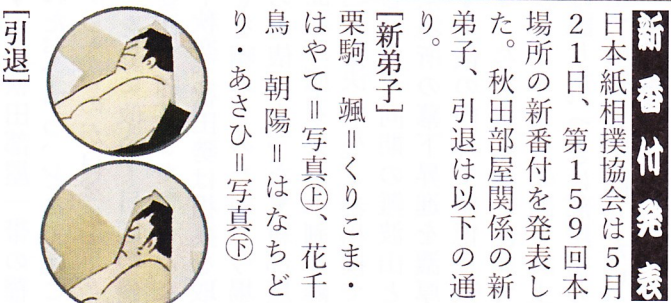 新番付発表
日本紙相撲協会は5月
21日、第159回本
場所の新番付を発表し
た。秋田部屋関係の新
弟子、引退は以下の通
り。
[新弟子]
栗駒 颯=くりこま・
はやて=写真㊤、花千
鳥 朝陽=はなちど
り・あさひ=写真㊦
[引退]